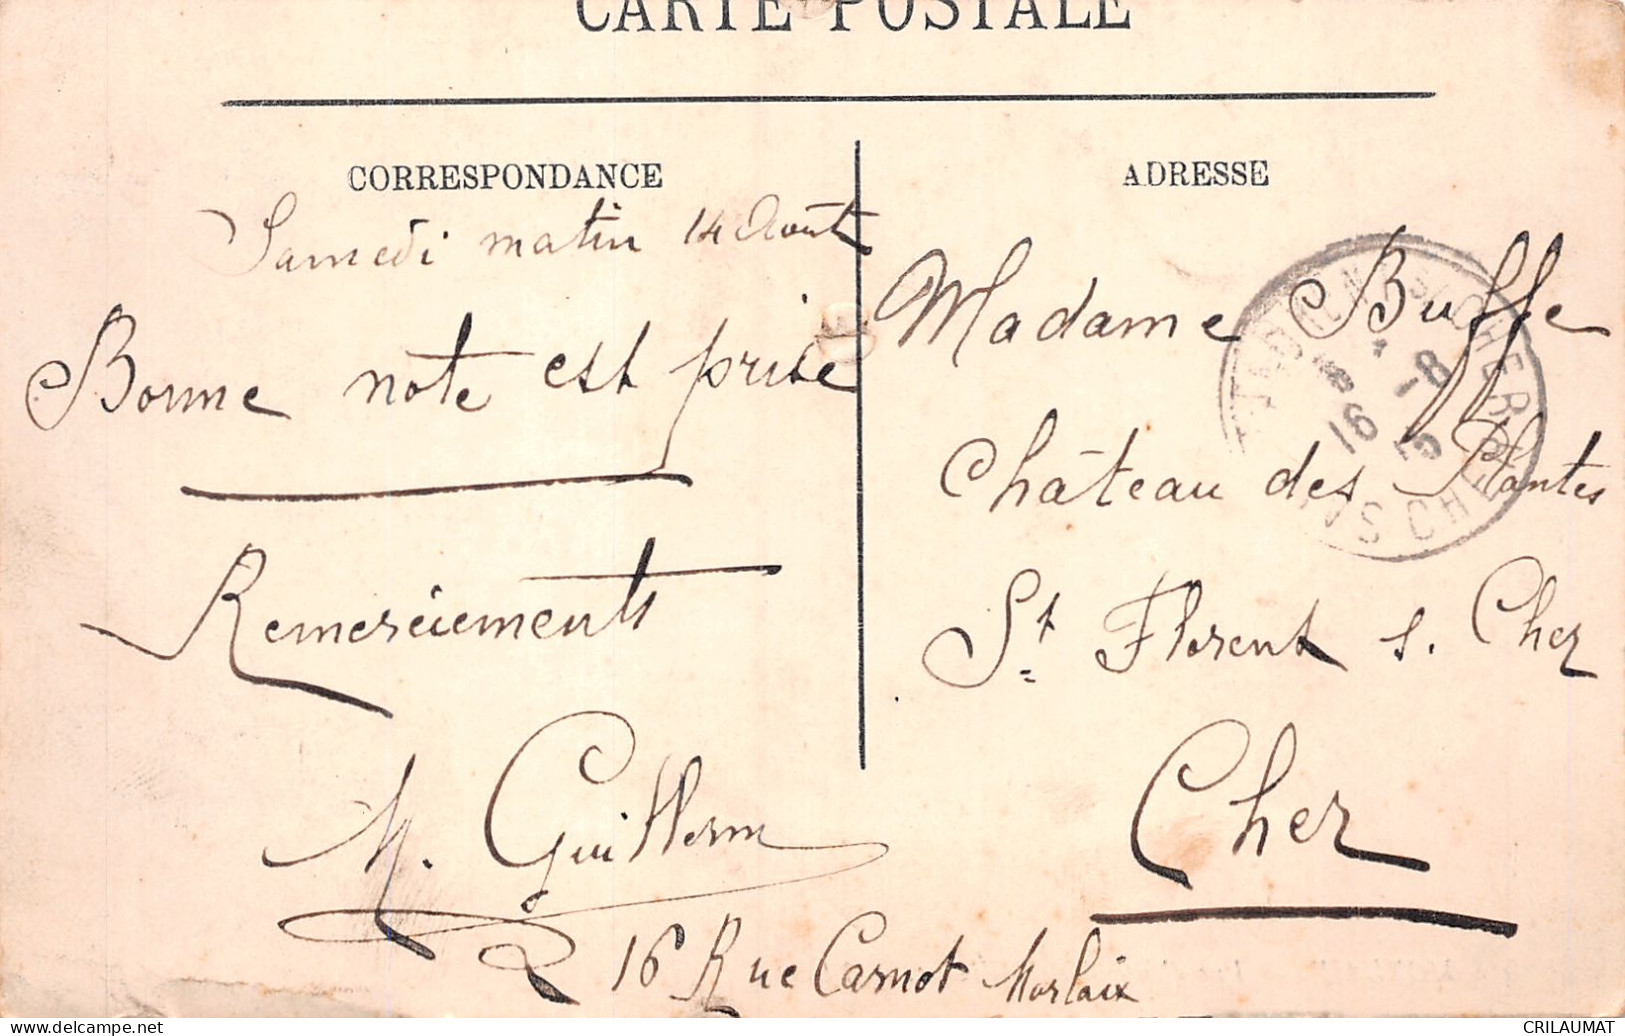 CARTE POSTALE
CORRESPONDANCE
Samedi matin 14 Août
Bonne note est prise
Remerciements
M. Guillerm
16 Rue Carnot Morlaix
ADRESSE
Madame Buffe
Château des Plantes
St Florent s. Cher
Cher
16 -8
15
CHER
CRILAUMAT